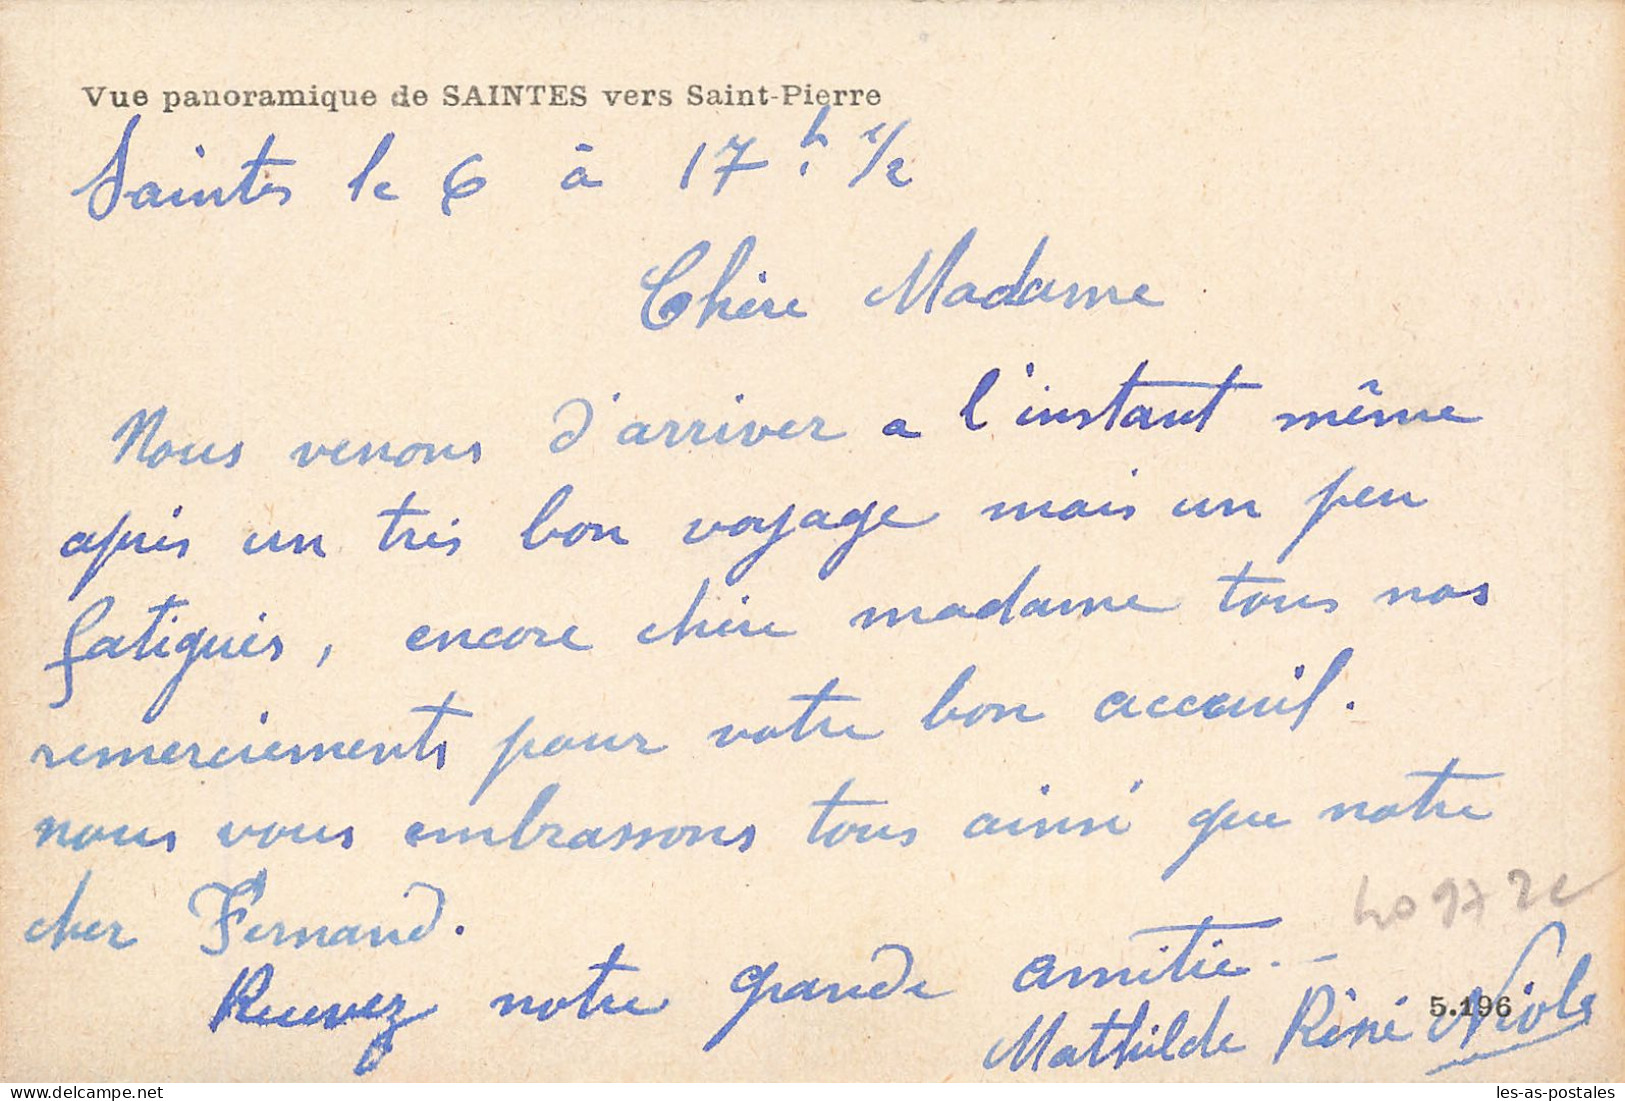 Vue panoramique de SAINTES vers Saint-Pierre
Saintes le 6 à 17 h. 1/2
Chère Madame
Nous venons d'arriver a l'instant même
après un très bon voyage mais un peu
fatigués, encore chère madame tous nos
remerciements pour votre bon acceuil.
nous vous embrassons tous ainsi que notre
cher Fernand.
Recevez notre grande amitié. -
Mathilde Réné
5.196
les-as-postales